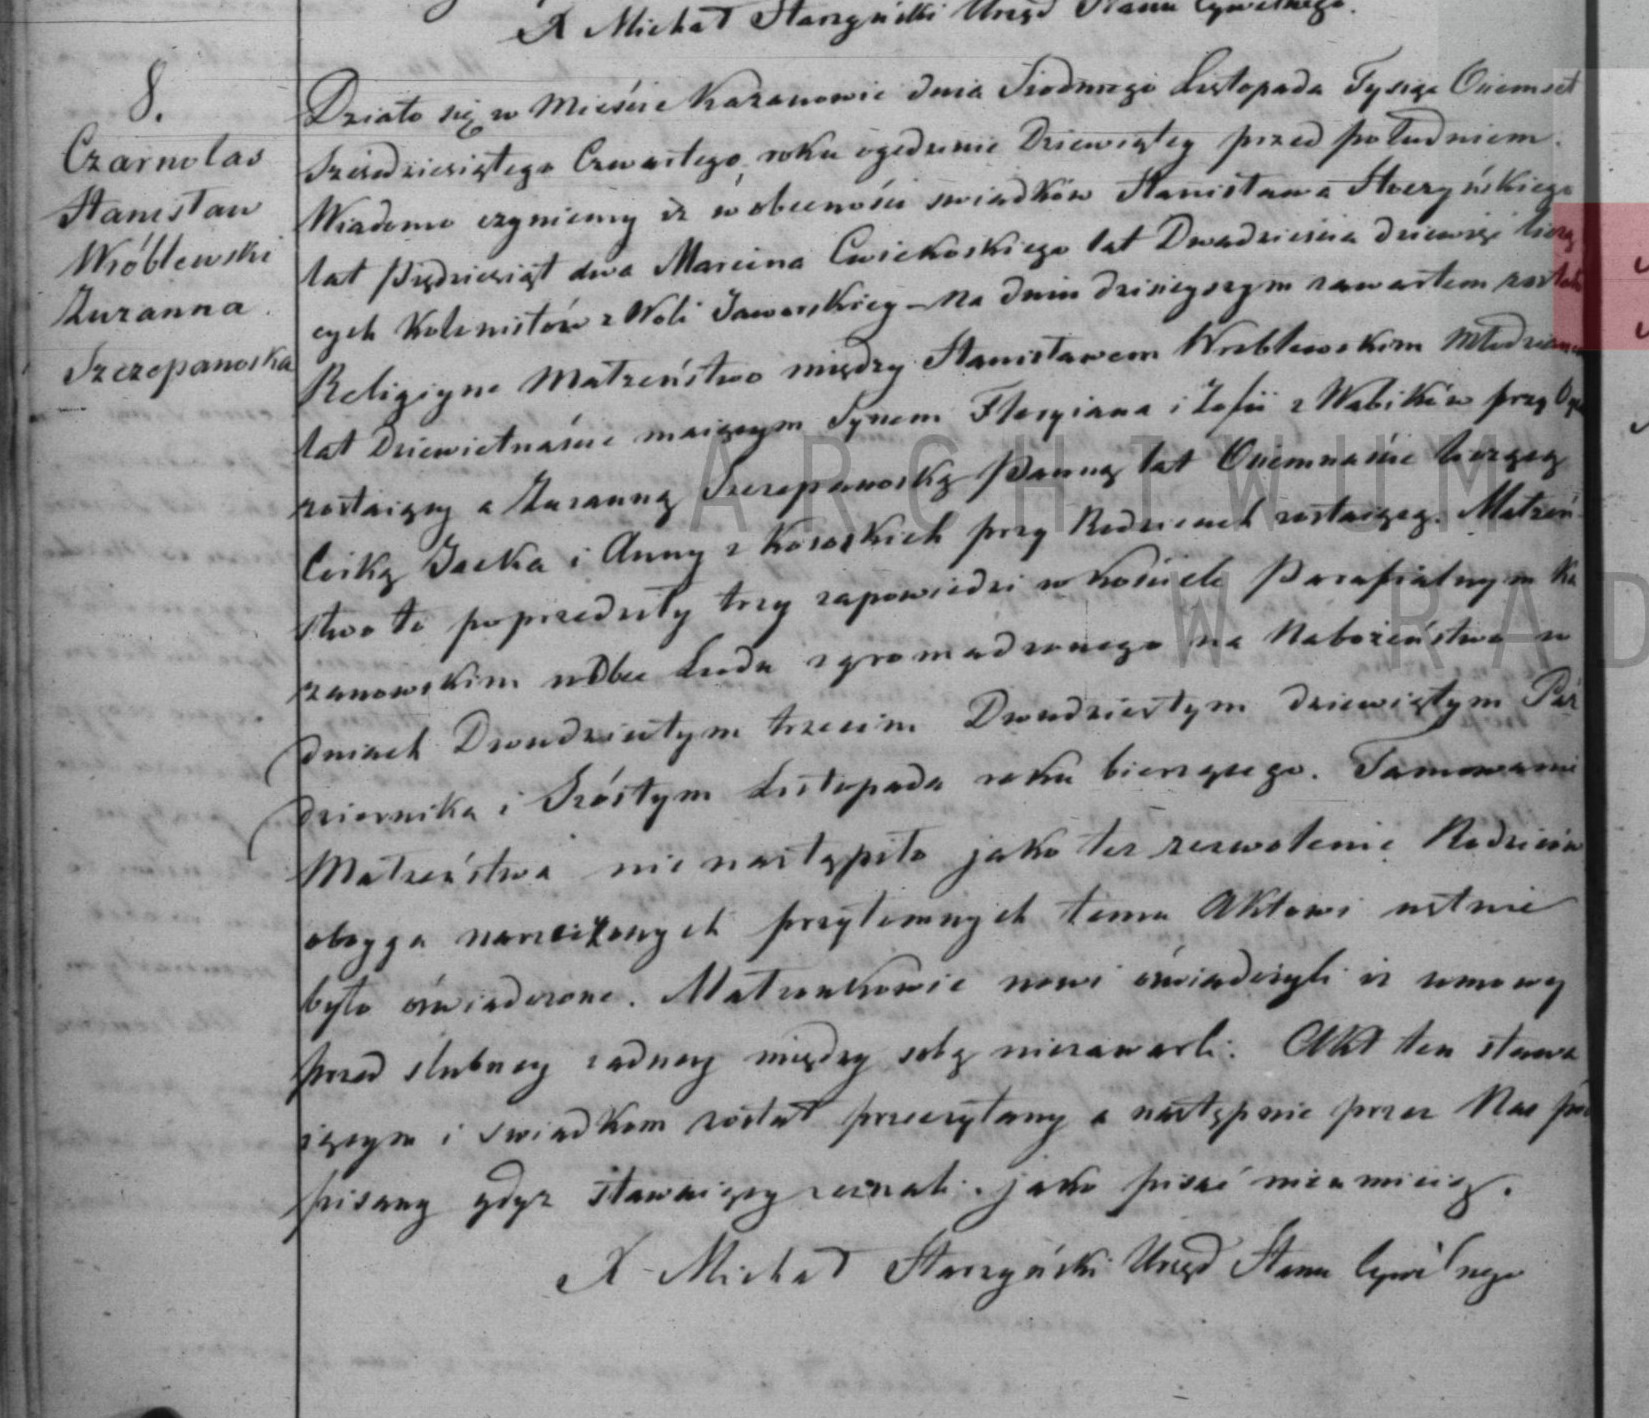 X Michał Starzyński Urzęd Stanu Cywilnego.
8.
Czarnolas
Stanisław
Wróblewski
Zuzanna
Szczepanoska
Działo się w Mieście Kazanowie dnia Siodmego Listopada Tysiąc Ośmset
Sześdziesiątego Czwartego roku o godzinie Dziewiątey przed południem.
Wiadomo czyniemy iż w obecności swiadków Stanisława
lat Piędziesiąt dwa Marcina Cwiekoskiego lat Dwadzieścia dziewięć liczą
cych Kolonistów z Woli Jaworskiey – Na dniu dzisieyszym zawartem zostało
Religiyne Małzeństwo między Stanisławem Wróblewskim Młodzianem
lat Dziewietnaście maiącym Synem Floryiana i Zofii z Wabików przy Oycu
zostaiący a Zuzanną Szczepanoską Panną lat Ośiemnaście liczącą
Córką Jacka i Anny z Kososkich przy Rodzicach zostaiącą. Małzeń
stwo to poprzedziły trzy zapowiedzi w kościele Parafialnym Ka
zanowskim wobec Ludu zgromadzonego na Nabożeństwo w
dniach Dwudziestym trzecim Dwudziestym dziewiątym Paź
dziernika i Szóstym Listopada roku bierzącego. Tamowanie
Małzeństwa nie nastąpiło jako też zezwolenie Rodziców
oboyga narzeczonych przytomnych temu Aktowi ustnie
było oświadczone. Małzonkowie nowi oświadczyli iż umowy
przed slubney zadney między sobą niezawarli. Akt ten stawa
iącym i swiadkom został przeczytany a następnie przez Nas pod
pisany gdyz stawaiący zeznali jako pisać nieumieią.
X Michał Starzyński Urzęd Stanu Cywilnego
ARCHIWUM
W RAD